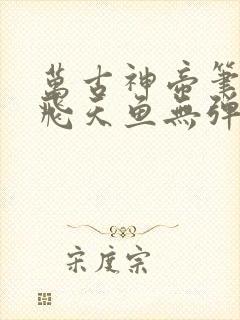 萬古神帝筆
飛天魚無彈
宋度宗